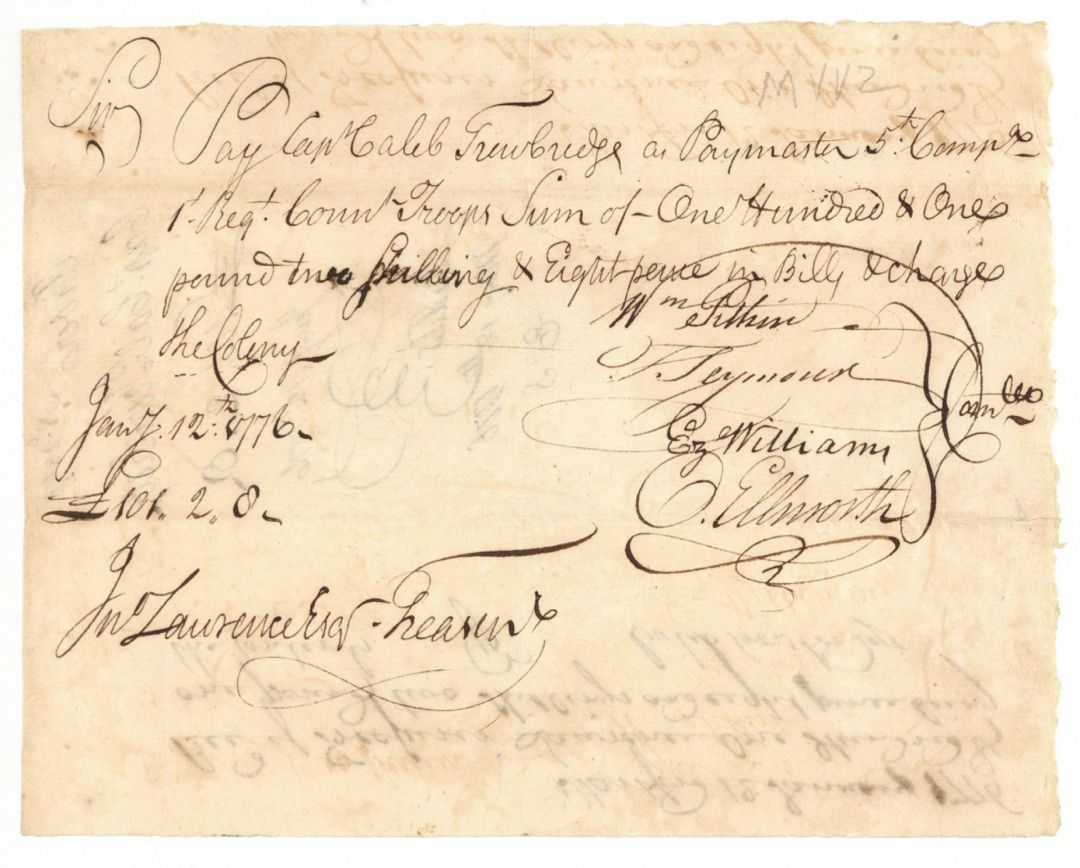 Sir Pay Capt Caleb Trowbridge as Paymaster 5th Compy
1t Regt. Connt Troops Sum of - One Hundred & One
pound two shilling & Eight pence in Bills & charge
the Colony
Jany. 12th. 1776-
£101,, 2,, 8-
Wm Pitkin
T. Seymour
Ez Williams
O. Ellsworth
Comtee
Jno Lawrence Esqr Treasurr
M 112